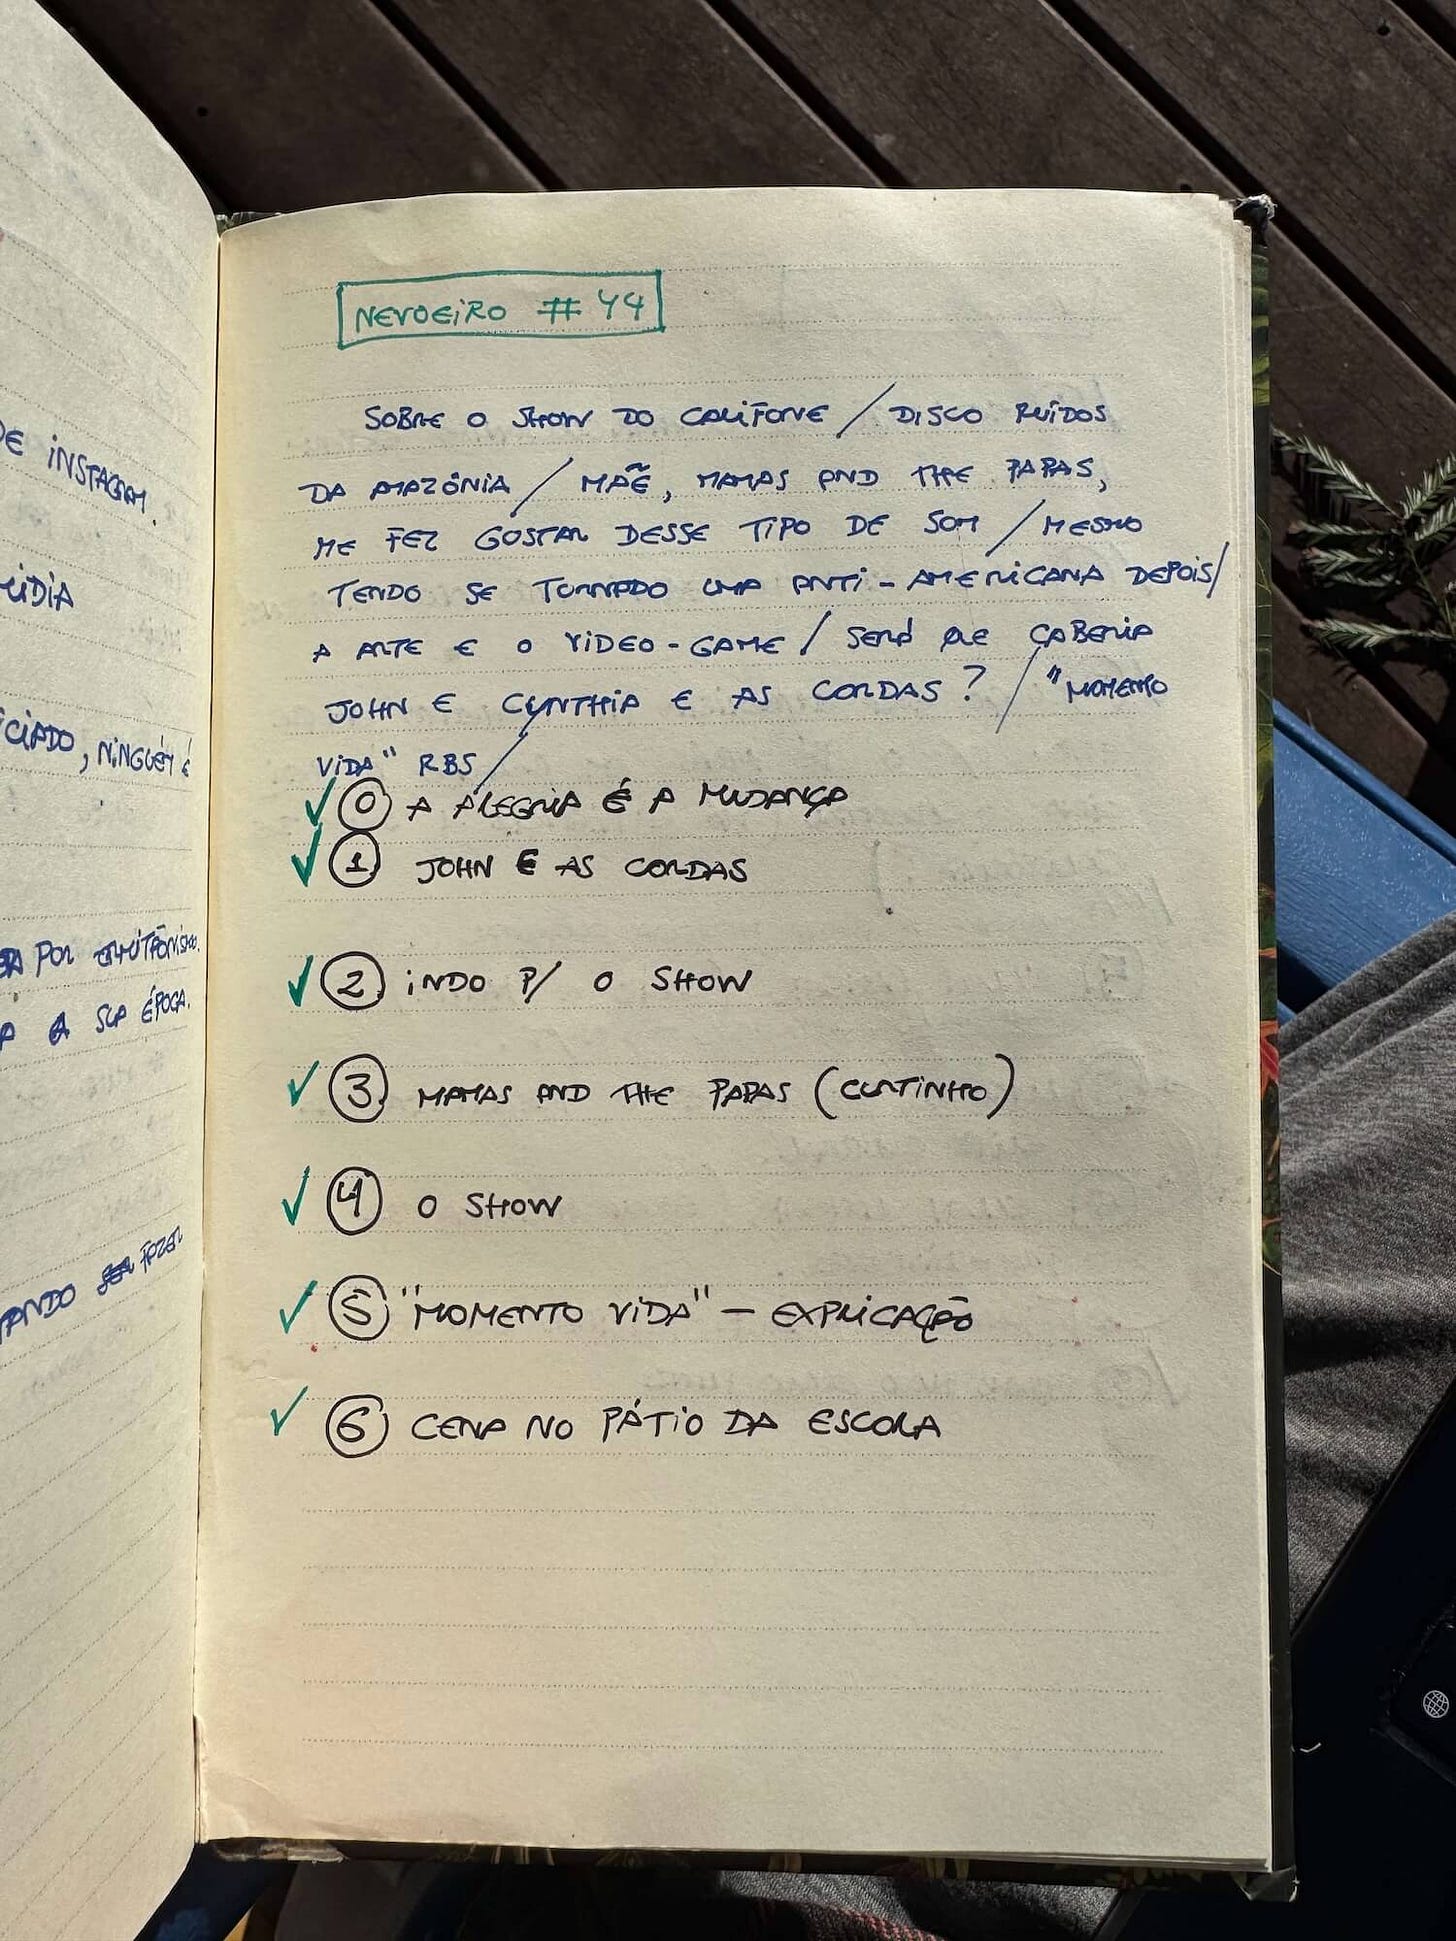 DE INSTAGRAM.
MÍDIA
CIADO, NINGUÉM É
POR
A SUA ÉPOCA.
ANDO FAZER
NEVOEIRO # 44
SOBRE O SHOW DO CALIFONE / DISCO RUÍDOS
DA AMAZÔNIA / MÃE, MAMAS AND THE PAPAS,
ME FEZ GOSTAR DESSE TIPO DE SOM / MESMO
TENDO SE TORNADO UMA ANTI-AMERICANA DEPOIS/
A ARTE E O VIDEO-GAME / SERÁ QUE CABERIA
JOHN E CYNTHIA E AS CORDAS? / "MOMENTO
VIDA" RBS /
✓ 0 A ALEGRIA É A MUDANÇA
✓ 1 JOHN E AS CORDAS
✓ 2 INDO P/ O SHOW
✓ 3 MAMAS AND THE PAPAS (CURTINHO)
✓ 4 O SHOW
✓ 5 "MOMENTO VIDA" - EXPLICAÇÃO
✓ 6 CENA NO PÁTIO DA ESCOLA